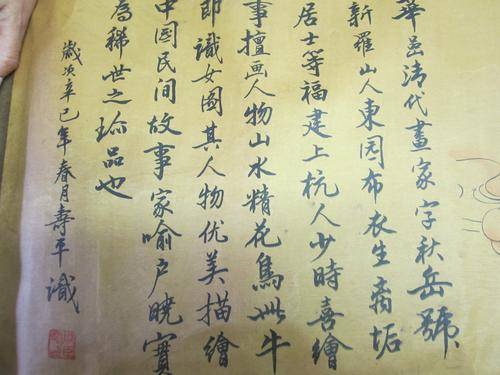 華嵒清代畫家字秋岳號
新羅山人東园布衣生离垢
居士等福建上杭人少時喜繪
事擅画人物山水精花鳥此牛
即識女图其人物优美描繪
中国民间故事家喻户曉實
為稀世之珎品也
歲次辛巳年春月壽平識